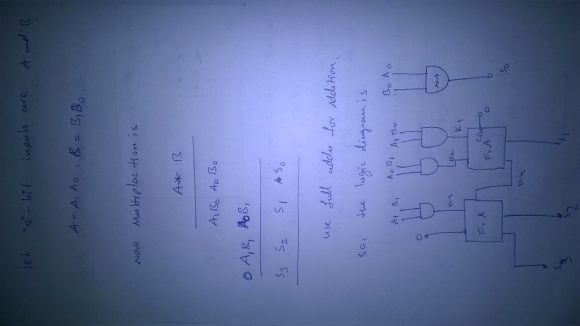 let "2" bit inputs are A and B
A = A1 A0 , B = B1 B0
now Multiplaction is
A * B
A1B0 A0B0
0 A1B1 A0B1
S3 S2 S1 S0
use full adder for addition,
so, the logic diagram is
B0 A0
AND
S0
A1 B0
A0 B1
F.A
0
S1
A1 B1
0
F.A
S2
S3